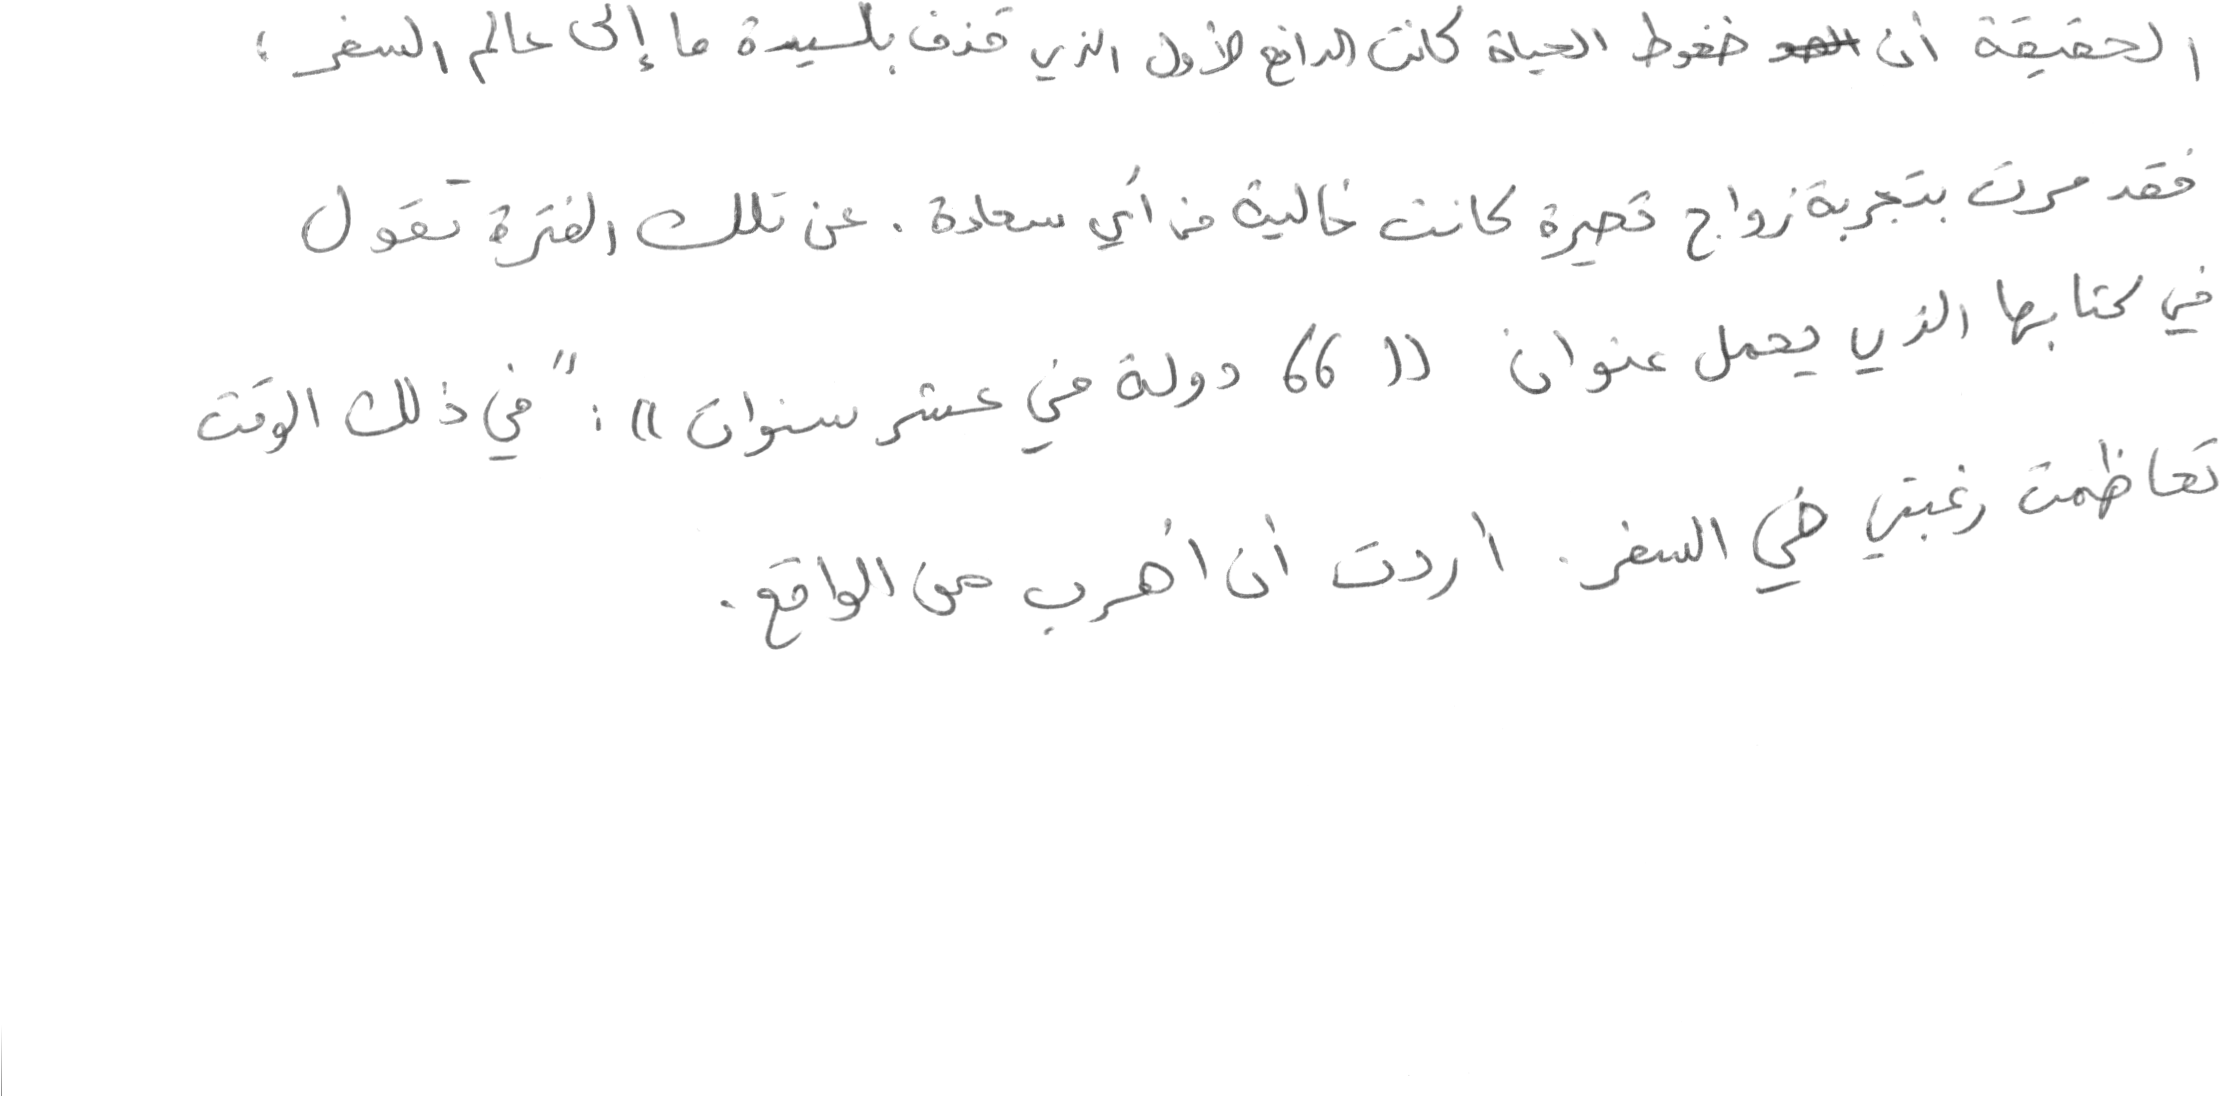 الحقيقة أن ضغوط الحياة كانت الدافع الأول الذي قذف بالسيدة ما إلى عالم السفر ،
فقد مرت بتجربة زواج قصيرة كانت خالية من أي سعادة . عن تلك الفترة تقول
في كتابها الذي يحمل عنوان (( 66 دولة في عشر سنوات )) : " في ذلك الوقت
تعاظمت رغبتي في السفر . أردت أن أهرب من الواقع .